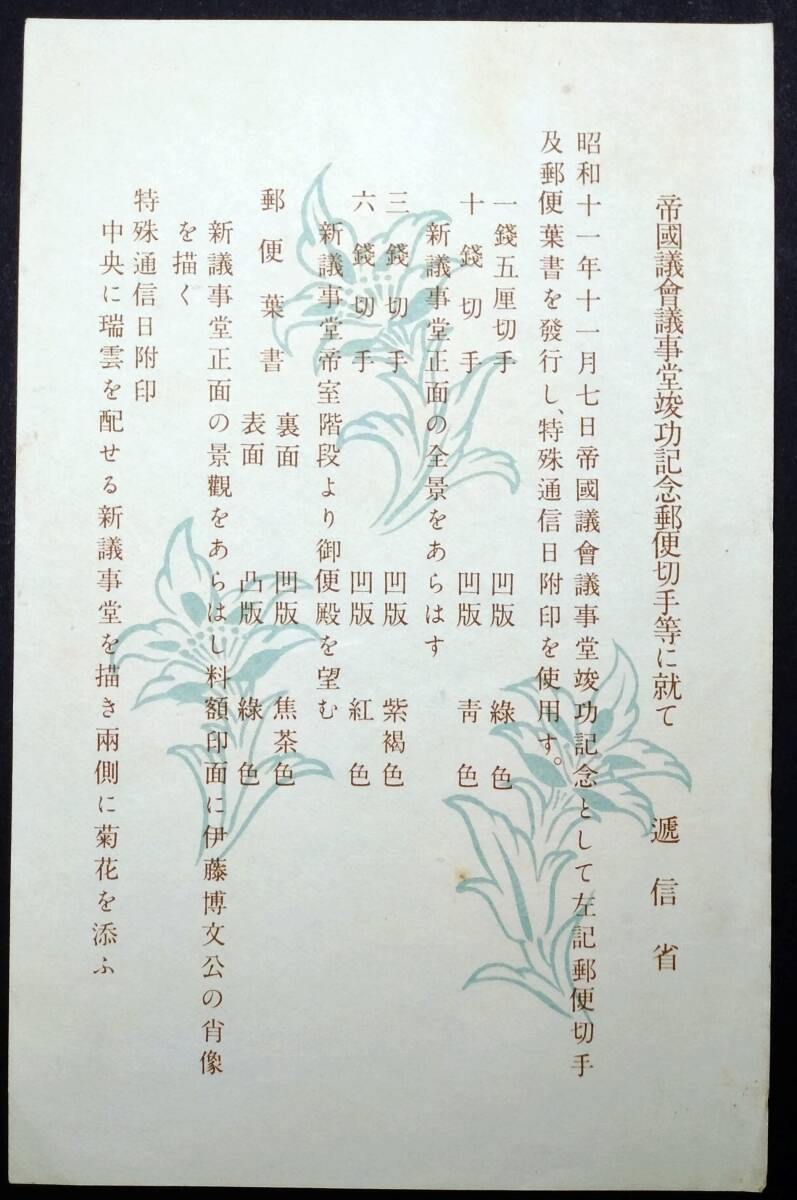 帝國議會議事堂竣功記念郵便切手等に就て　遞信省
昭和十一年十一月七日帝國議會議事堂竣功記念として左記郵便切手
及郵便葉書を發行し、特殊通信日附印を使用す。
一錢五厘切手　凹版　綠色
十錢切手　凹版　靑色
新議事堂正面の全景をあらはす
三錢切手　凹版　紫褐色
六錢切手　凹版　紅色
新議事堂帝室階段より御便殿を望む
郵便葉書　裏面　凹版　焦茶色
表面　凸版　綠色
新議事堂正面の景觀をあらはし料額印面に伊藤博文公の肖像
を描く
特殊通信日附印
中央に瑞雲を配せる新議事堂を描き兩側に菊花を添ふ